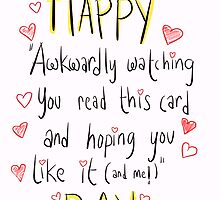 HAPPY
"Awkwardly watching
You read this card
and hoping you
like it (and me!)"
DAY